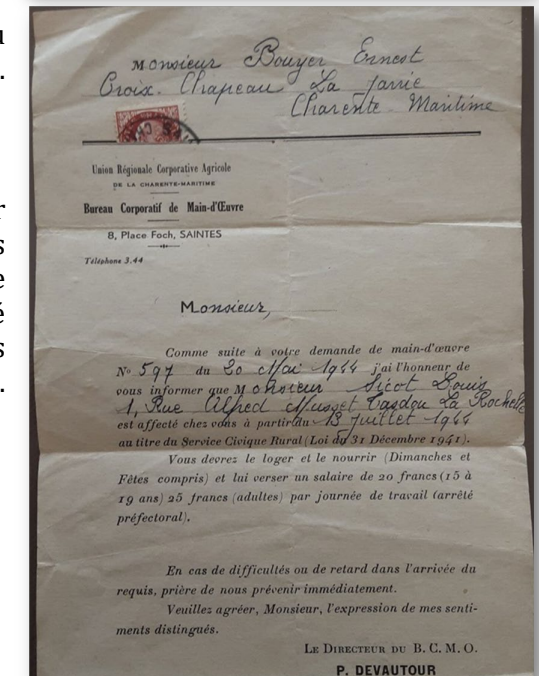 Monsieur Bouyer Ernest
Croix. Chapeau La Jarrie
Charente Maritime
Union Régionale Corporative Agricole
DE LA CHARENTE-MARITIME
Bureau Corporatif de Main-d'Œuvre
8, Place Foch, SAINTES
Téléphone 3.44
Monsieur,
Comme suite à votre demande de main-d'œuvre
N° 597 du 20 Mai 1944 j'ai l'honneur de
vous informer que Monsieur Sicot Louis
1, Rue Alfred Musset Tasdon La Rochelle
est affecté chez vous à partir du 13 juillet 1944
au titre du Service Civique Rural (Loi du 31 Décembre 1941).
Vous devrez le loger et le nourrir (Dimanches et
Fêtes compris) et lui verser un salaire de 20 francs (15 à
19 ans) 25 francs (adultes) par journée de travail (arrêté
préfectoral).
En cas de difficultés ou de retard dans l'arrivée du
requis, prière de nous prévenir immédiatement.
Veuillez agréer, Monsieur, l'expression de mes senti-
ments distingués.
LE DIRECTEUR DU B. C. M. O.
P. DEVAUTOUR